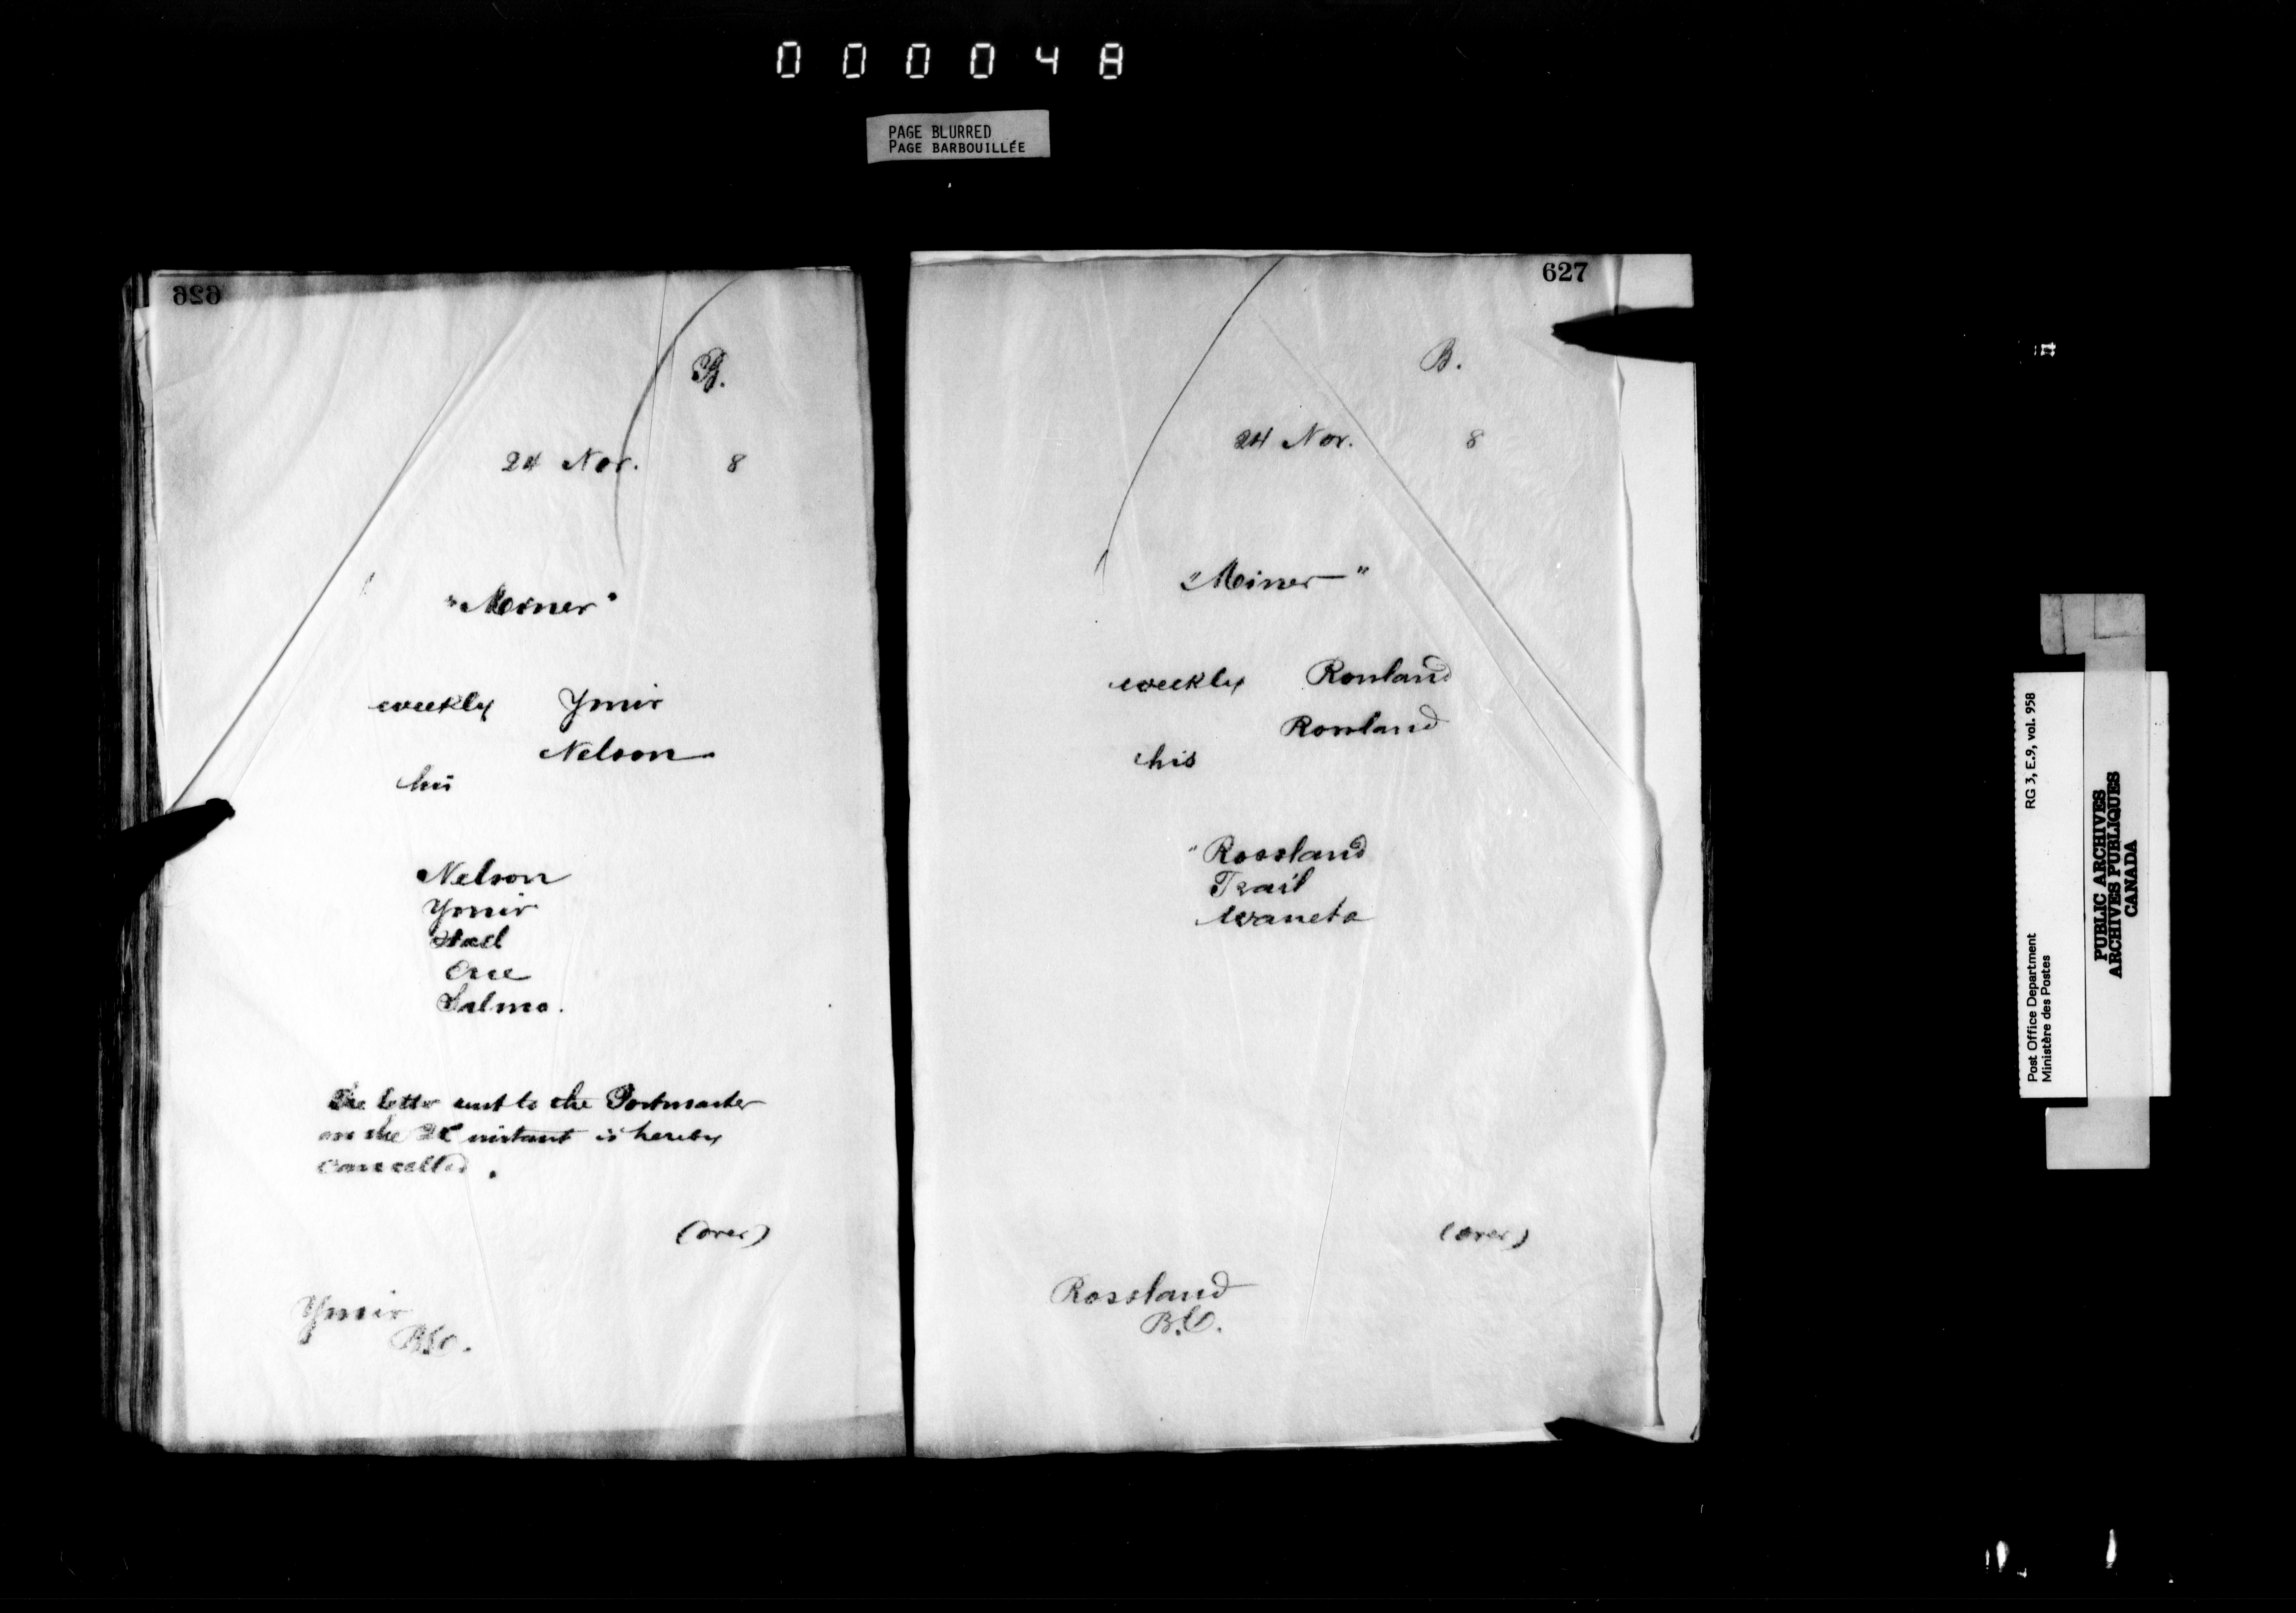 000048
PAGE BLURRED
PAGE BARBOUILLÉE
626
B.
24 Nov. 8
"Miner"
weekly Ymir
Nelson
his
Nelson
Ymir
Hall
Erie
Salmo.
The letter sent to the Postmaster
on the instant is hereby
cancelled.
(over)
Ymir
B.C.
627
B.
24 Nov. 8
"Miner"
weekly Rossland
Rossland
his
"Rossland
Trail
Waneta
(over)
Rossland
B.C.
Post Office Department
Ministère des Postes
RG 3, E.9, vol. 958
PUBLIC ARCHIVES
ARCHIVES PUBLIQUES
CANADA